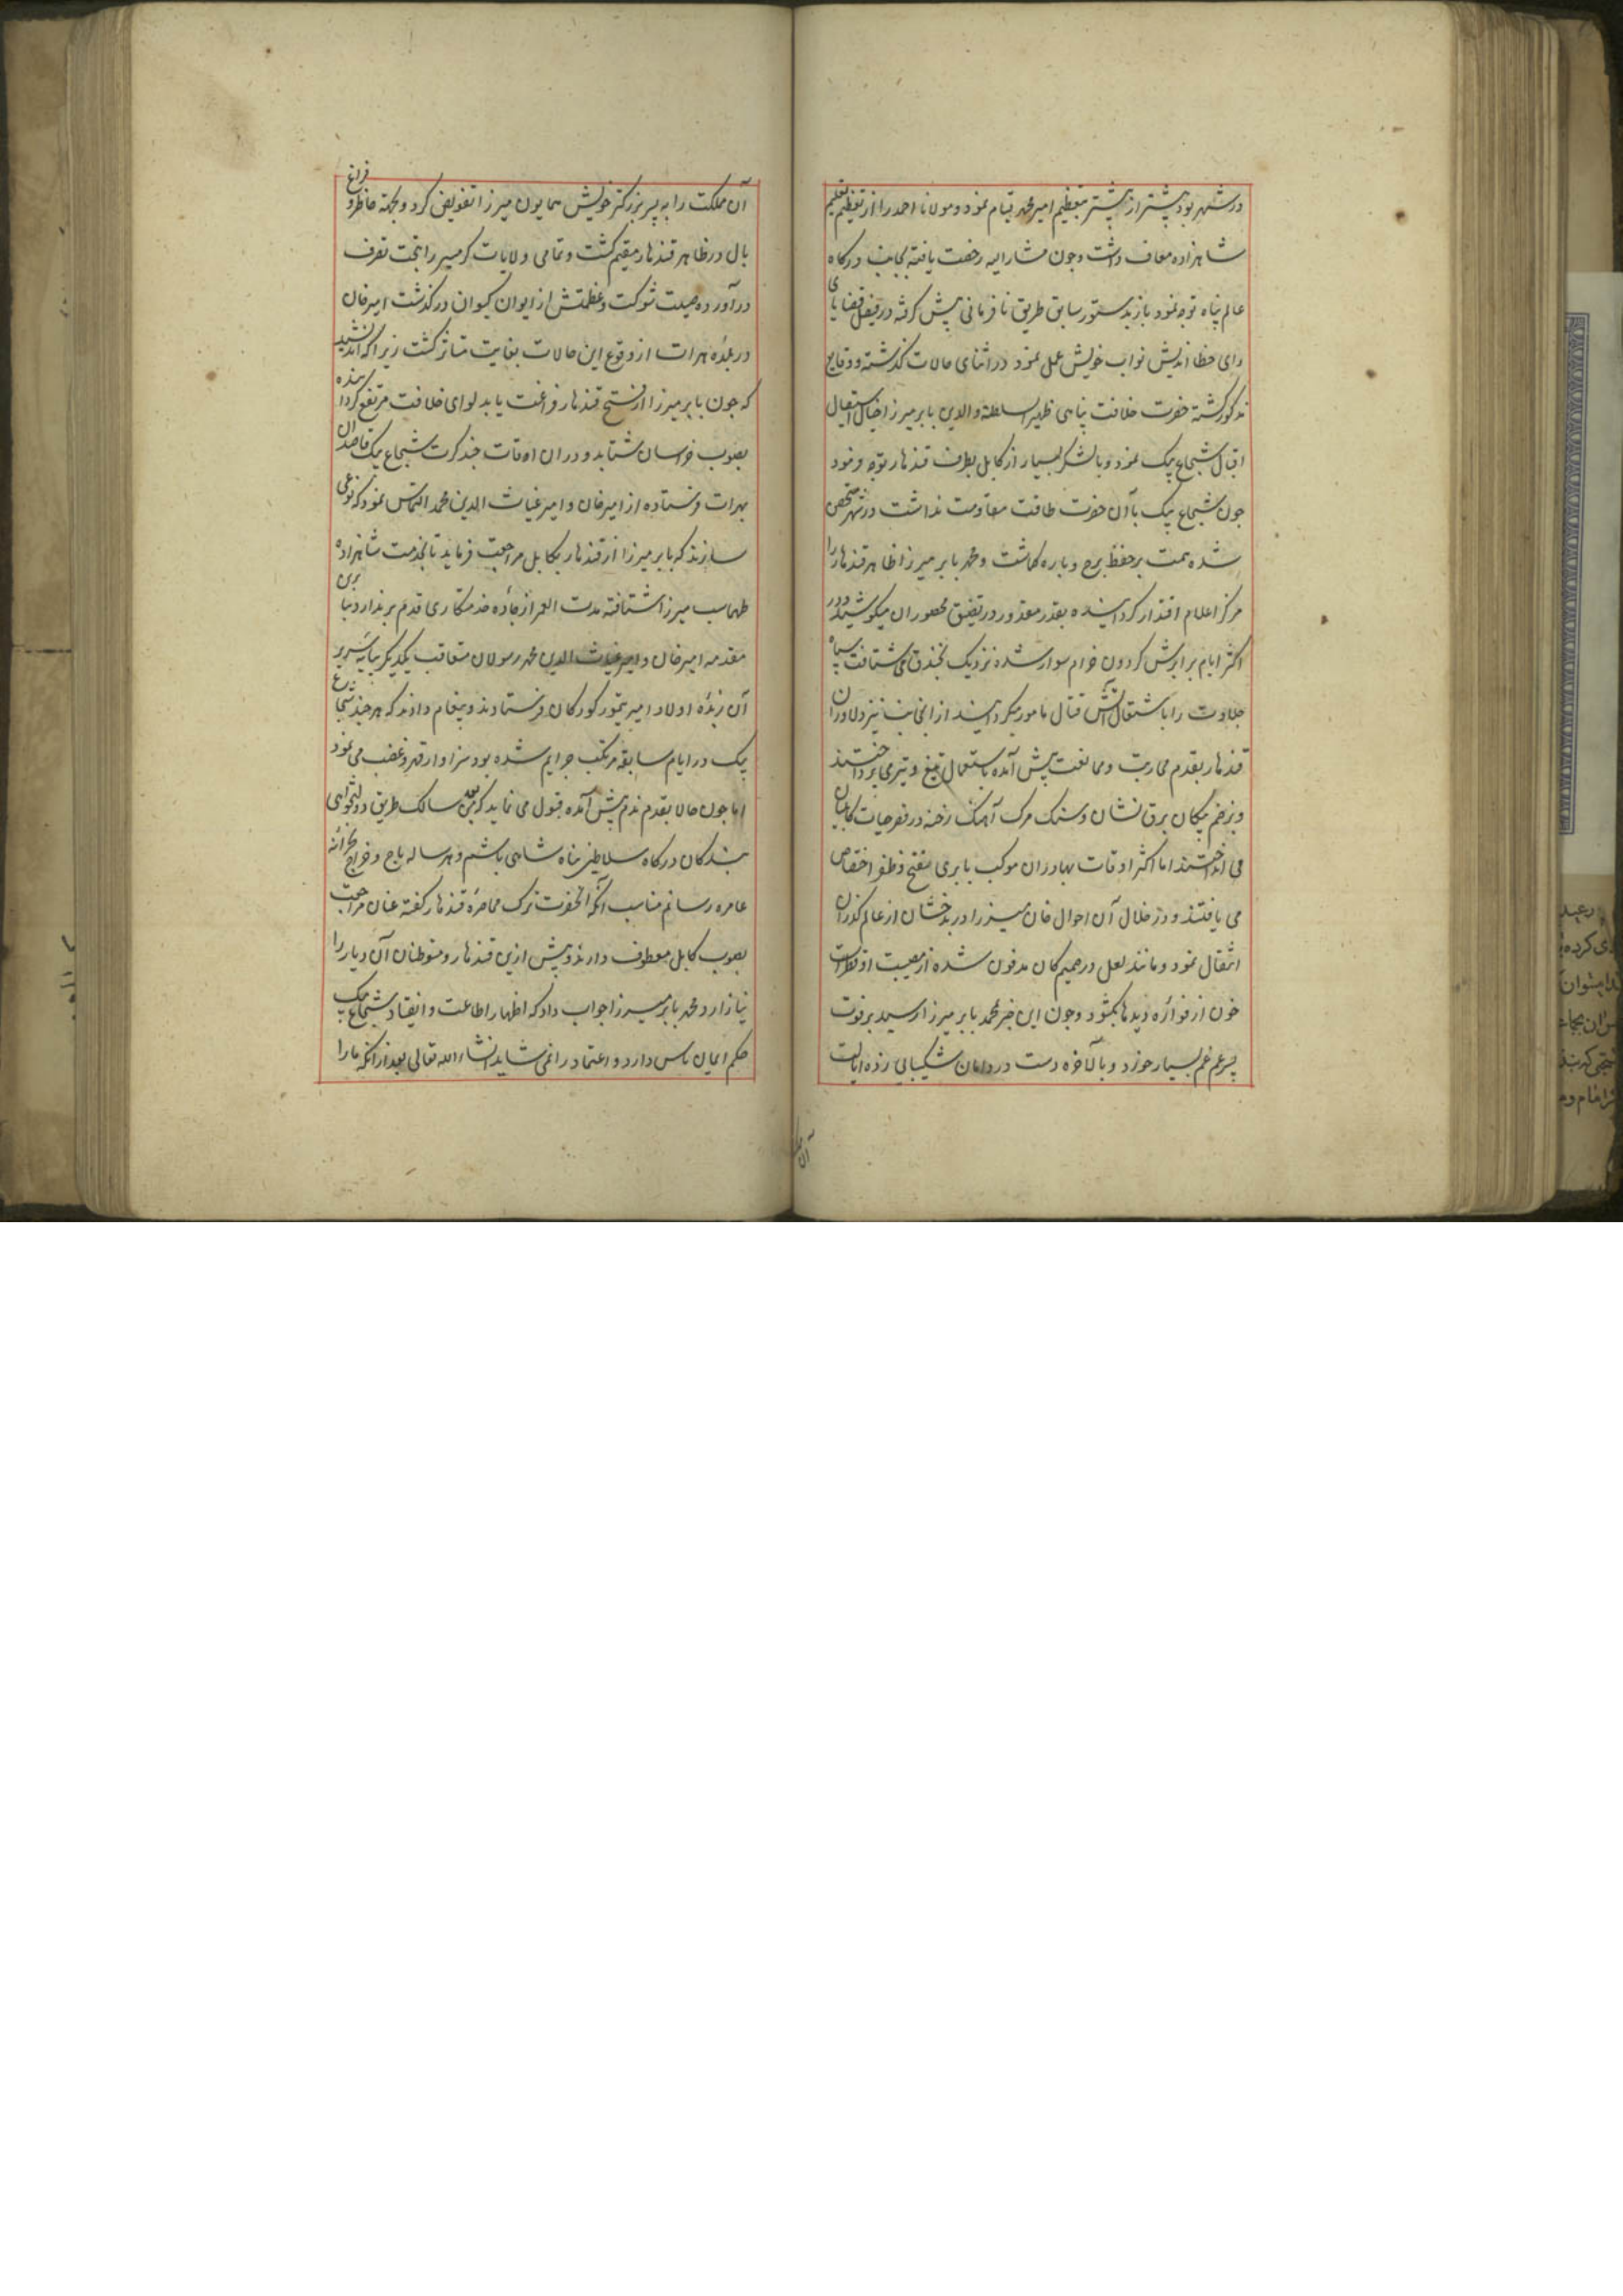 در شهر بود پیشتر از پیشتر بتعظیم امیر محمد قیام نمود و مولانا احمد را از تعظیم
شاهزاده معاف داشت و چون مشار الیه رخصت یافته بجانب درکاه
عالم پناه توجه نمود باز بدستور سابق طریق نا فرمانی پیش کرفته در فیصل قضایا
رای خطا اندیش نواب خویش عمل نمود در اثنای حالات کذشته و وقایع
مذکور کشته حضرت خلافت پناهی ظهیر السلطنة والدین بابر میرزا خیال استیصال
اقبال شجاع بیک نمود و با لشکر بسیار از کابل بطرف قندهار توجه فرمود
چون شجاع بیک با آن حضرت طاقت مقاومت نداشت در شهر متحصن
شده همت بر حفظ برج و باره کماشت و محمد بابر میرزا ظاهر قندهار را
مرکز اعلام اقتدار کردانیده بقدر مقدور در تضییق محصوران میکوشید و در
اکثر ایام بر ابرش کردون خرام سوار شده نزدیک بخندق می شتافت سپاه
جلادت را باشتعال آتش قتال مامور میکردانید از انجانب نیز دلاوران
قندهار بقدم محاربت و ممانعت پیش آمده باستعمال تیغ و تیر می پرداختند
و بزخم پیکان برق نشان و سنک مرک آهنک رخنه در قصر حیات کابلیان
می انداختند اما اکثر اوقات بهادران موکب بابری بفتح و ظفر اختصاص
می یافتند و در خلال آن احوال خان میرزا در بدخشان از عالم کذران
انتقال نمود و مانند لعل در صمیم کان مدفون شده از مصیبت او قطرات
خون از فواره دیدها بکشود و چون این خبر بمحمد بابر میرزا رسید بر فوت
پسر عم غم بسیار خورد و بالآخره دست در دامان شکیبایی زده ایالت
آن مملکت را به پسر بزرکتر خویش همایون میرزا تفویض کرد و بجهة خاطر و فراغ
بال در ظاهر قندهار مقیم کشت و تمامی ولایات کرمسیر را بتحت تصرف
در آورده صیت شوکت و عظمتش از ایوان کیوان در کذشت امیر خان
در بلده هرات از وقوع این حالات بغایت متاثر کشت زیرا که اندیشید
که چون بابر میرزا از فتح قندهار فراغت یابد لوای خلافت مرتفع کردانیده
بصوب خراسان شتابد و در ان اوقات چند کرت شجاع بیک قاصدان
بهرات فرستاده از امیر خان و امیر غیاث الدین محمد التماس نمود که نوعی
سازند که بابر میرزا از قندهار بکابل مراجعت فرماید تا بخدمت شاهزاده
طهماسب میرزا شتافته مدت العمر از جاده خدمتکاری قدم بر ندارد بنا برین
مقدمه امیر خان و امیر غیاث الدین محمد رسولان متعاقب یکدیکر بپایه سریر
آن زبده اولاد امیر تیمور کورکان فرستادند و پیغام دادند که هر چند شجاع
بیک در ایام سابقه مرتکب جرایم شده بود سزاوار قهر و غضب می نمود
اما چون حالا بقدم ندم پیش آمده قبول می نماید که من بعد سالک طریق دولتخواهی
بندکان درکاه سلاطین پناه شاهی باشم و هر ساله باج و خراج بخزانه
عامره رسانم مناسب آنکه آنحضرت ترک محاصره قندهار کفته عنان مراجعت
بصوب کابل معطوف دارند و بیش ازین قندهار و متوطنان آن دیار را
نیازارد و محمد بابر میرزا جواب داد که اظهار اطاعت و انقیاد شجاع بیک
حکم ایمان یاس دارد و اعتماد را نمی شاید انشاء الله تعالی بعد از انکه ما را
آن